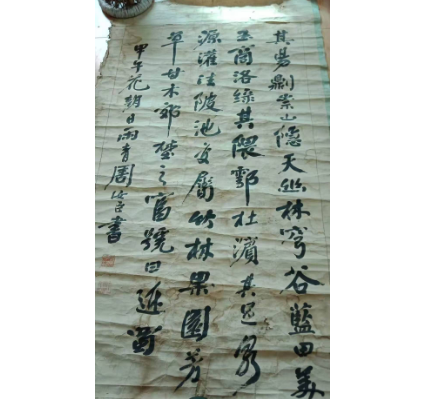 其陽則崇山隱天幽林穹谷藍田美
玉商洛緣其隈鄠杜濱其足
源灌注陂池交屬竹林果園芳
草甘木郊埜之富號曰近蜀
甲午花朝日雨青周書